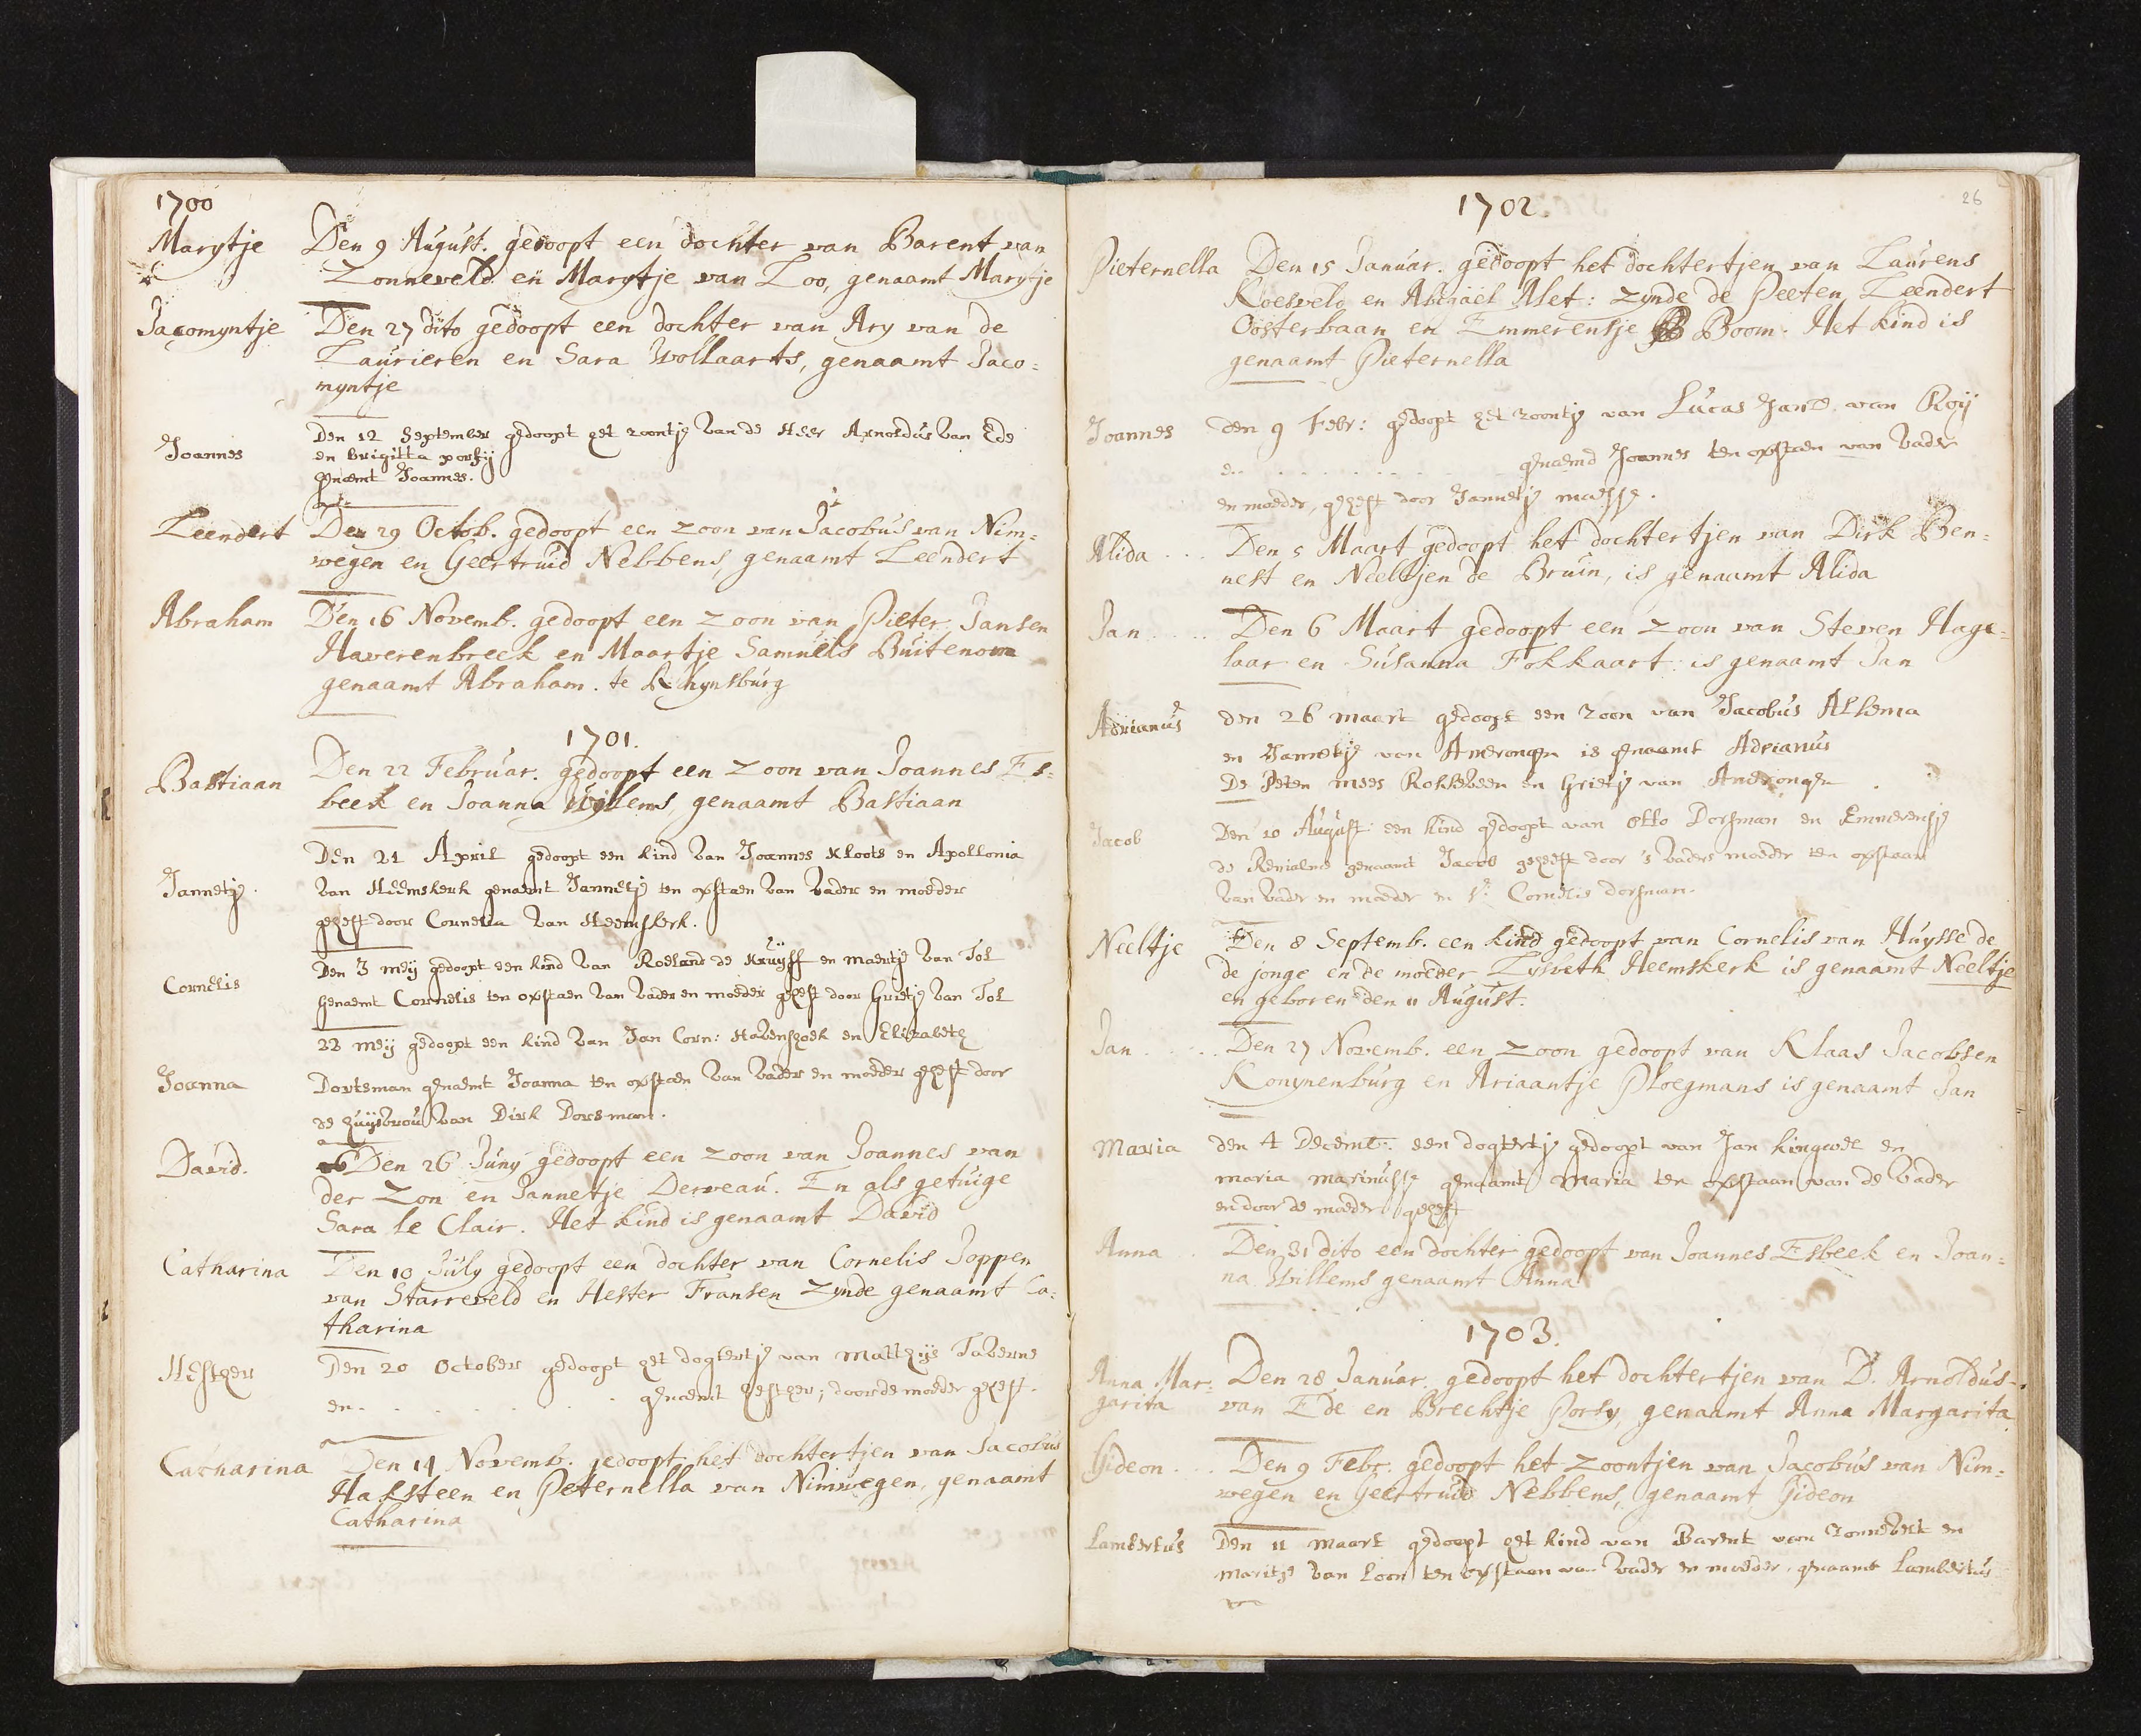 1700
Marytje Den 9 August. gedoopt een dochter van Barent van
Zonneveld en Marytje van Loo, genaamt Marytje
Jacomyntje Den 27 dito gedoopt een dochter van Ary van de
Laurieren en Sara Wollaarts, genaamt Jaco=
myntje
Joannes Den 12 September gedoopt het zoontje van de Heer Arnoldus van Ede
en Brigitta Porsij
genaemt Joannes.
Leendert Den 29 Octob. gedoopt een zoon van Jacobus van Nim=
wegen en Geertruid Nebbens, genaamt Leendert
Abraham Den 16 Novemb. gedoopt een zoon van Pieter Jansen
Haverenbreek en Maartje Samuels Buitenom
genaamt Abraham. te Rhynsburg
1701.
Bastiaan Den 22 Februar. gedoopt een zoon van Joannes Es=
beek en Joanna Willems, genaamt Bastiaan
Den 21 April gedoopt een kind van Joannes Kloots en Apollonia
Jannetje. van Heemskerk genaemt Jannetje ten opstaen van vader en moeder
geheft door Cornelia van Heemskerk.
Den 3 meij gedoopt een kind van Roeland de Kruijff en maertje van Tol
Cornelis genaemt Cornelis ten opstaen van vader en moeder geheft door Grietje van Tol
22 meij gedoopt een kind van Jan Corn: Havenhoek en Elizabeth
Joanna Dortsman genaemt Joanna ten opstaen van vader en moeder geheft door
de huijsvrou van Dirk Dorsman.
David. Den 26 Juny gedoopt een zoon van Joannes van
der Zon en Jannetje Derveau. En als getuige
Sara le Clair. Het kind is genaamt David
Catharina Den 10 July gedoopt een dochter van Cornelis Joppen
van Starreveld en Hester Fransen zynde genaamt Ca=
tharina
Hesther Den 20 October gedoopt het dogtertje van Matthijs Taverne
en . . . . . . . genaemt Hesther; door de moeder geheft.
Catharina Den 14 Novemb. gedoopt het dochtertjen van Jacobus
Haksteen en Peternella van Nimwegen, genaamt
Catharina
26
1702.
Pieternella Den 15 Januar. gedoopt het dochtertjen van Laurens
Koesveld en Abigaël Alet: zynde de Peeten Leendert
Oosterbaan en Emmerensje Boom. Het kind is
genaamt Pieternella
Joannes den 9 Febr: gedoopt het zoontje van Lucas Jans. van Roij
en . . . . . . . genaemd Joannes ten opstaen van vader
en moeder, geheft door Jannetje
Alida . . . Den 5 Maart gedoopt het dochtertjen van Dirk Ben=
nest en Neeltjen de Bruin, is genaamt Alida
Jan . . . . Den 6 Maart gedoopt een zoon van Steven Hage=
laar en Susanna Fokkaart: is genaamt Jan
Adrianus den 26 maart gedoopt een zoon van Jacobus Alkema
en Jannetje van is genaamt Adrianus
De Peten mees Rokkeveen en Grietje van
Jacob Den 20 August een kind gedoopt van Otto Dorsman en Emmerensje
de genaamt Jacob geheft door 's vaders moeder ten opstaan
van vader en moeder en Cornelis Dorsman.
Neeltje Den 8 Septemb. een kind gedoopt van Cornelis van Huysse de
de jonge en de moeder Lysbeth Heemskerk is genaamt Neeltje
en geboren den 11 August.
Jan . . . . Den 27 Novemb. een zoon gedoopt van Klaas Jacobsen
Konynenburg en Ariaantje Ploegmans is genaamt Jan
Maria den 4 Decemb: een dogtertje gedoopt van Jan Kingwel en
maria marinusse genaamt maria ten opstaan van de vader
en door de moeder geheft
Anna . Den 31 dito een dochter gedoopt van Joannes Esbeek en Joan=
na Willems genaamt Anna
1703.
Anna Mar= Den 28 Januar. gedoopt het dochtertjen van D. Arnoldus
garita van Ede en Brechtje Porsy, genaamt Anna Margarita
Gideon . . . Den 9 Febr. gedoopt het zoontjen van Jacobus van Nim=
wegen en Geertruid Nebbens, genaamt Gideon
Lambertus Den 11 maart gedoopt het kind van Barent van Zonnevelt en
maritje van Loon ten opstaan van vader en moeder, genaamt Lambertus